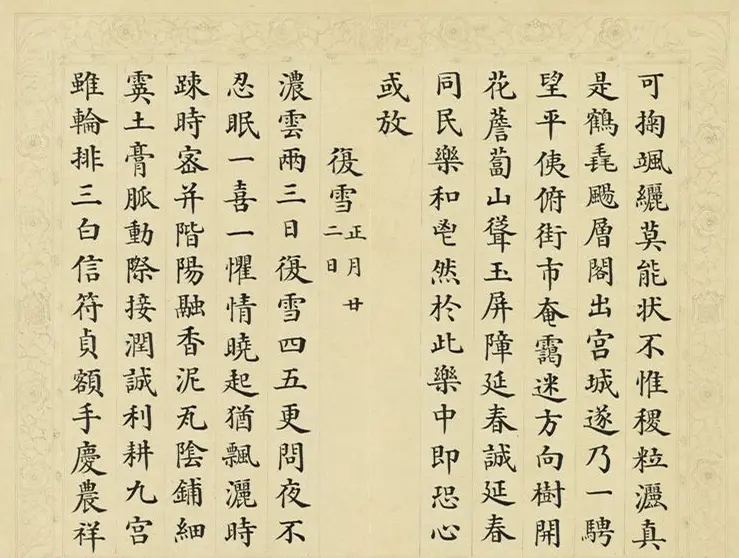 可掬颯纚莫能状不惟稷粒灑真
是鶴毳颺層閣出宮城遂乃一騁
望平俯街市奄靄迷方向樹開
花薝蔔山聳玉屏障延春誠延春
同民樂和鬯然於此樂中即恐心
或放
復雪
正月廿
二日
濃雲兩三日復雪四五更問夜不
忍眠一喜一懼情曉起猶飄灑時
踈時宻并階陽融香泥瓦陰鋪細
霙土膏脈動際接潤誠利耕九宮
雖輪排三白信符貞額手慶農祥